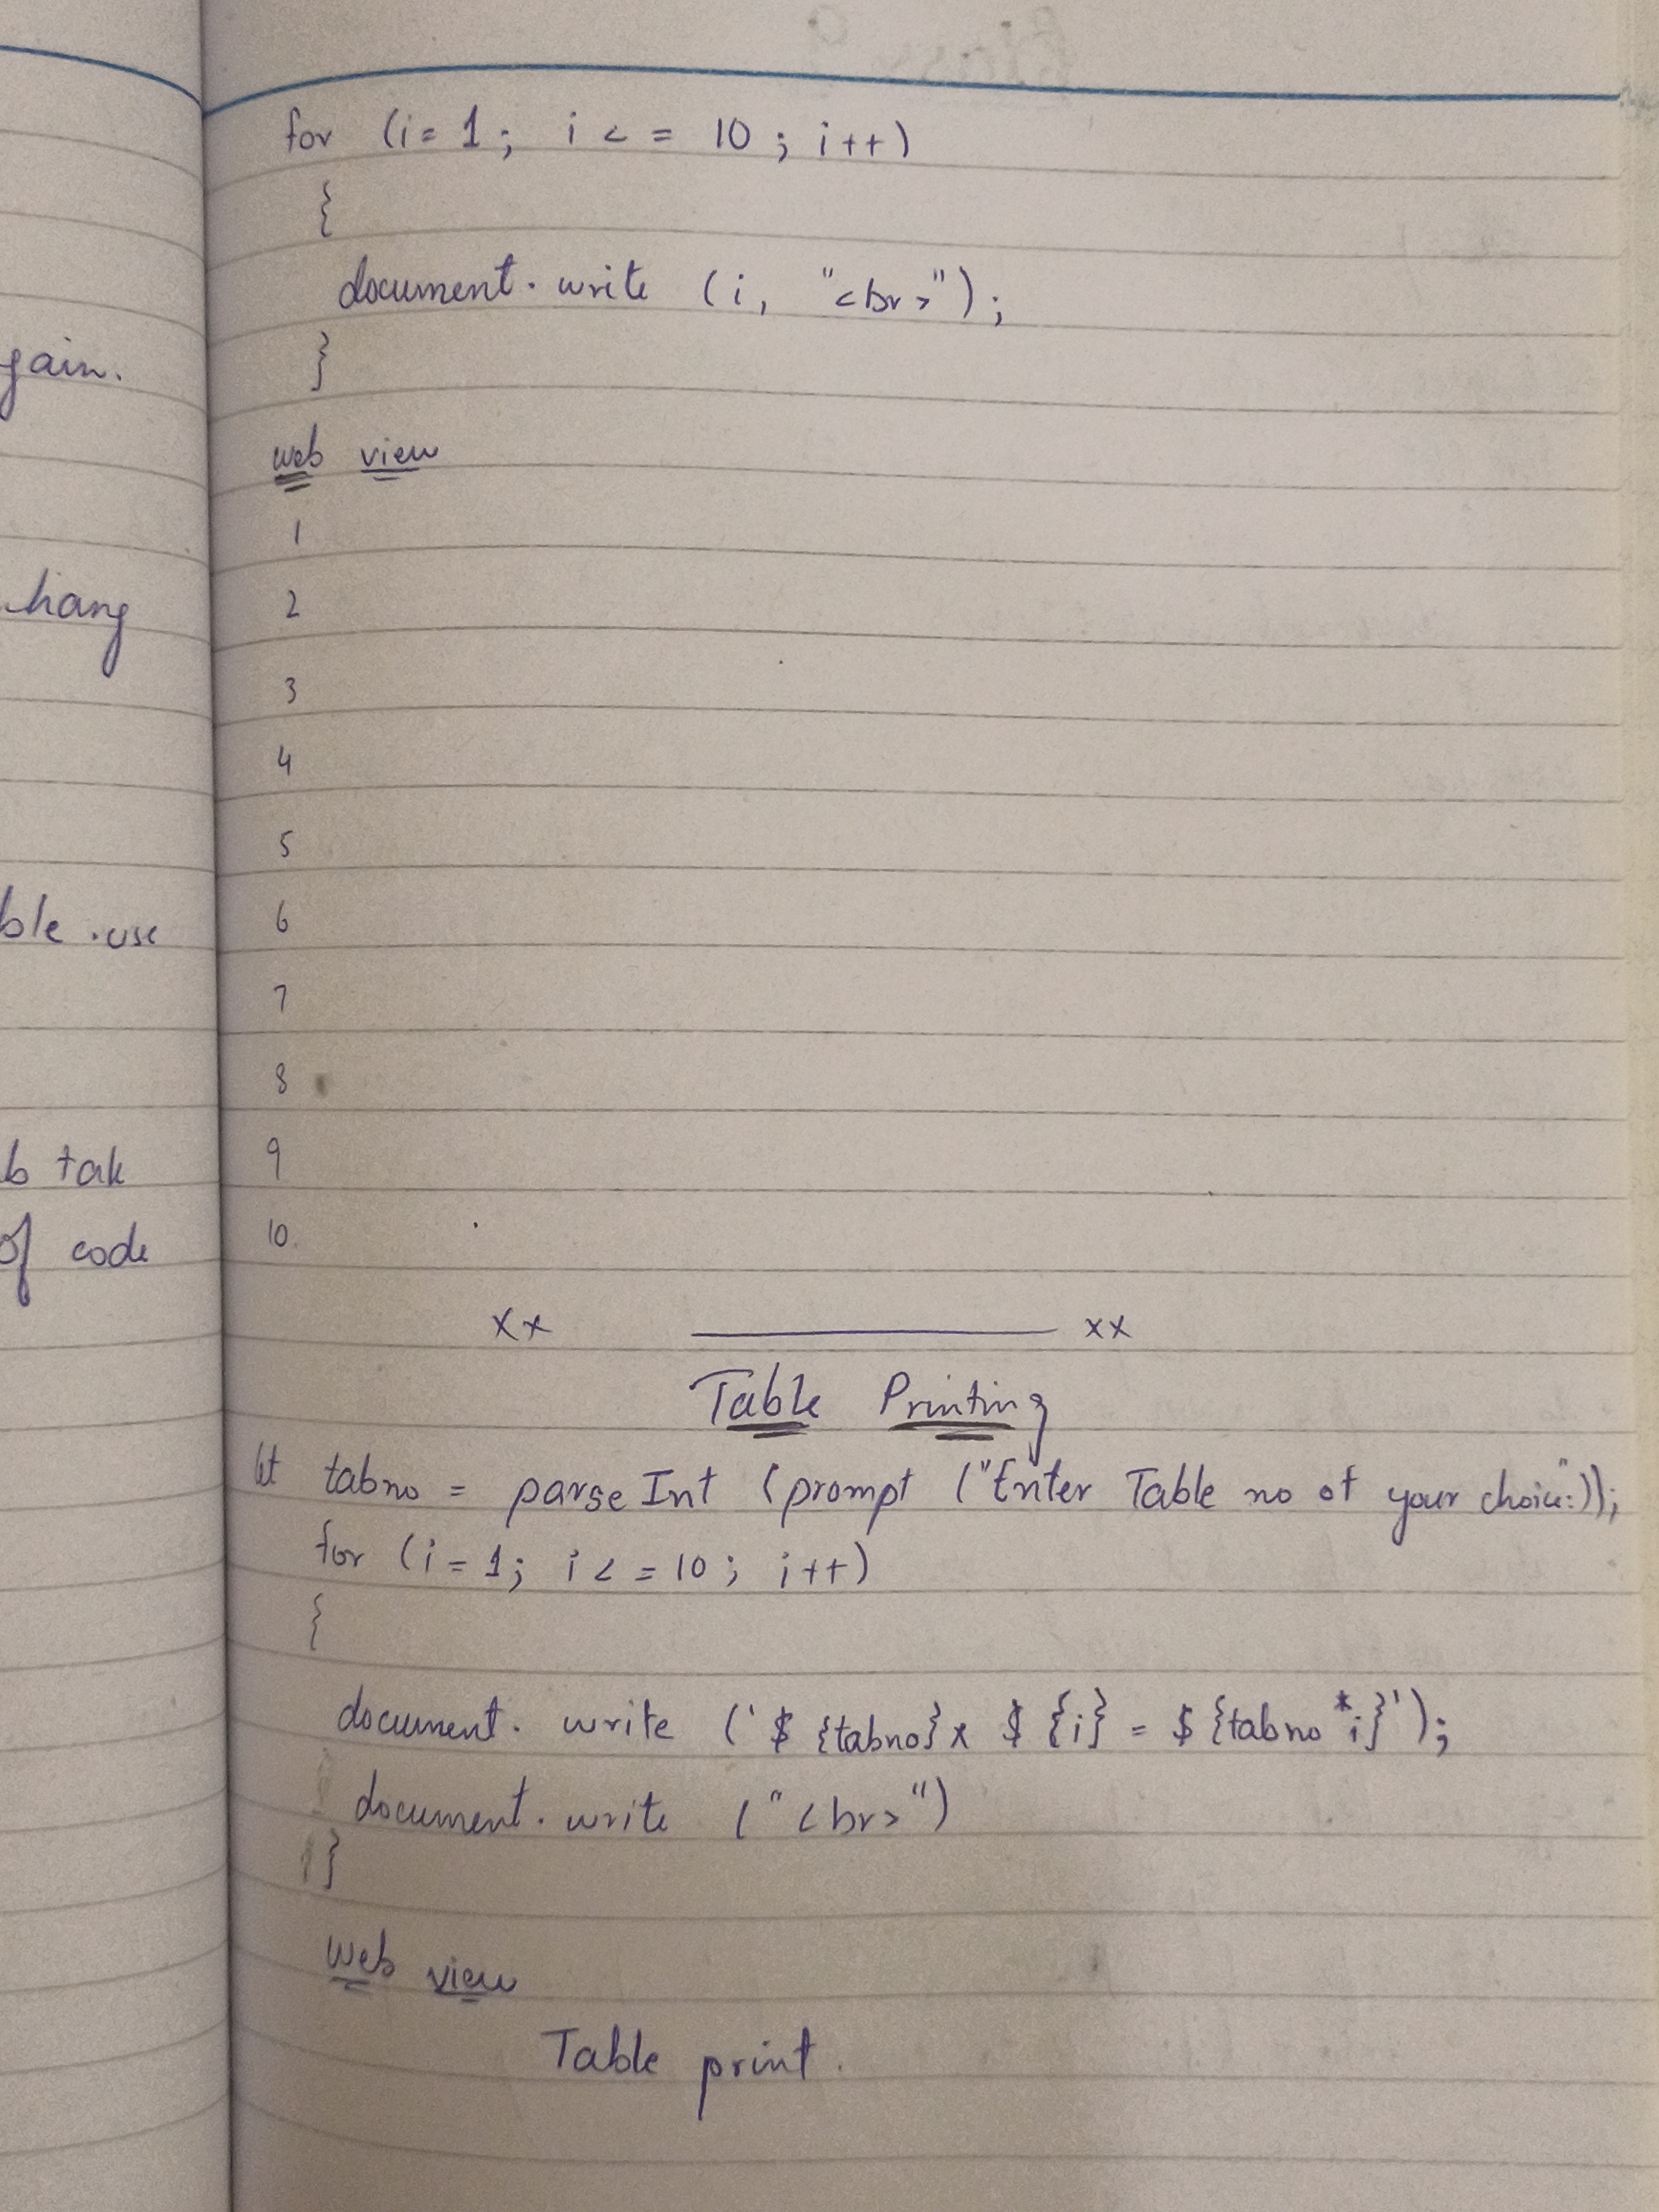 gain.
hang
ble use
b tak
of code
for (i= 1; i <= 10; i++)
{
document.write (i, "<br>");
}
web view
1
2
3
4
5
6
7
8
9
10.
xx ——— xx
Table Printing
let tabno = parseInt (prompt ("Enter Table no of your choice:"));
for (i=1; i<=10; i++)
{
document. write ('${tabno}x ${i} = ${tabno*i}');
document.write ("<br>")
}
Web view
Table print.